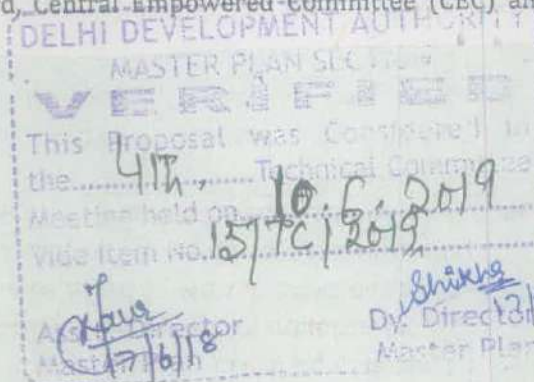 d, Central Empowered Committee (CEC) an
DELHI DEVELOPMENT AUTHORITY
MASTER PLAN SECTION
VERIFIED
This Proposal was Considered in
the........4Th,......Technical Committee
Meeting held on 10.6.2019
Vide Item No. 15/TC/2019
Director
17/6/18
Shikha
Dy. Director
Master Plan